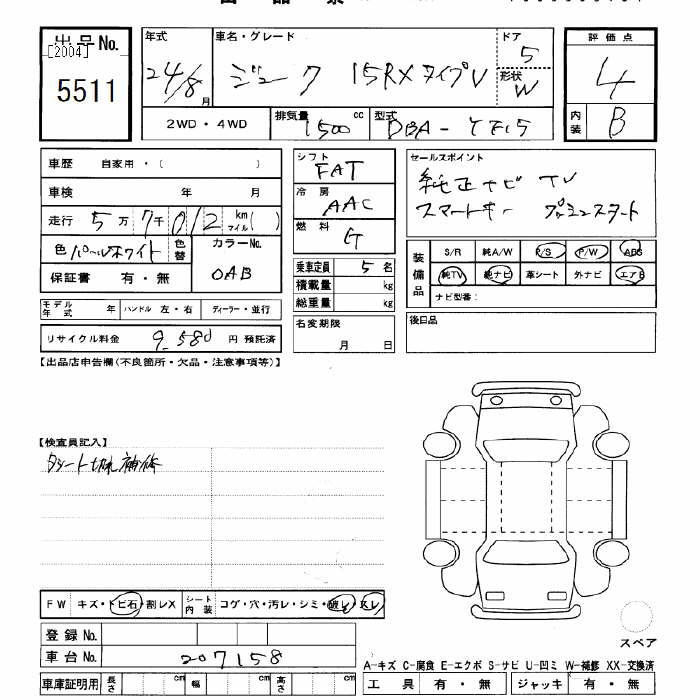 出品No.
[2004]
5511
年式
24/8月
車名・グレード
ジューク 15RX タイプV
ドア
5
形状
W
評価点
4
内装
B
2WD・4WD
排気量
1500cc
型式
DBA-YF15
車歴 自家用・( )
車検 年 月
走行 5万7千012km マイル( )
色 パールホワイト
色替
カラーNo.
QAB
保証書 有・無
シフト
FAT
冷房
AAC
燃料
G
乗車定員 5名
積載量 kg
総重量 kg
セールスポイント
純正ナビ TV
スマートキー プッシュスタート
装備品
S/R 純A/W P/S P/W ABS
純TV 純ナビ 革シート 外ナビ エアB
ナビ型番:
モデル年式 年 ハンドル 左・右 ディーラー・並行
リサイクル料金 9,580円 預託済
名変期限
月 日
後日品
【出品店申告欄(不良箇所・欠品・注意事項等)】
【検査員記入】
シート切れ補修
FW キズ・トビ石・割レX シート内装 コゲ・穴・汚レ・シミ・破レ・スレ
登録No.
車台No. 207158
スペア
車庫証明用 長さ cm 幅 cm 高さ cm
A-キズ C-腐食 E-エクボ S-サビ U-凹ミ W-補修 XX-交換済
工具 有・無 ジャッキ 有・無